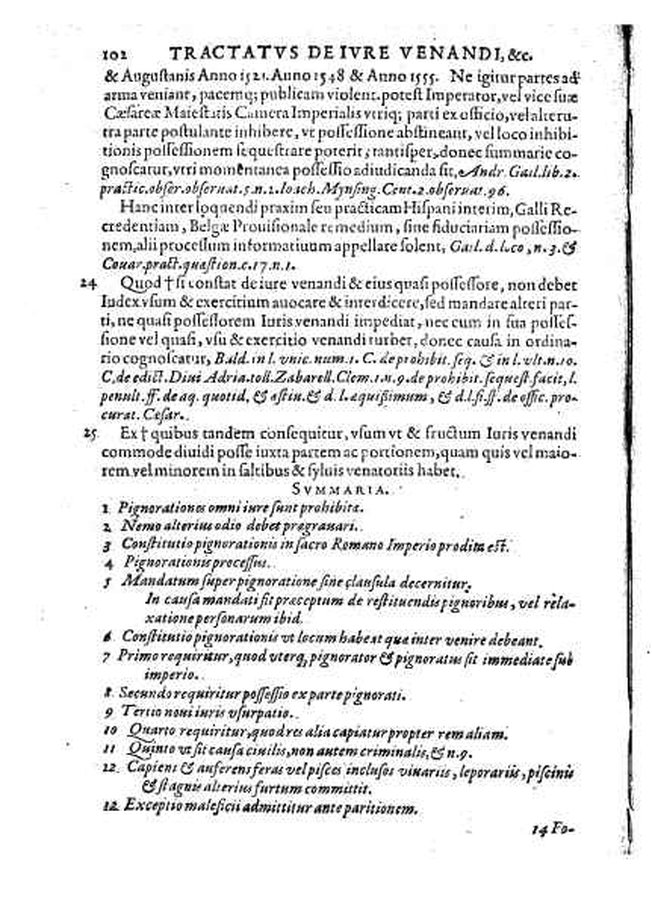 102 TRACTATVS DE IVRE VENANDI, &c.
& Augustanis Anno 1521. Anno 1548 & Anno 1555. Ne igitur partes ad
arma veniant, pacemq; publicam violent. potest Imperator, vel vice suæ
Cæsareæ Maiestatis Camera Imperialis vtriq; parti ex officio, vel alteru-
tra parte postulante inhibere, vt possessione abstineant, vel loco inhibi-
tionis possessionem sequestrare poterit; tantisper, donec summarie co-
gnoscatur, vtri momentanea possessio adiudicanda sit, Andr. Gail. lib. 2.
practic. obser. obseruat. 5. n. 1. Ioach. Mynsing. Cent. 2. obseruat. 96.
Hanc inter loquendi praxim seu practicam Hispani interim, Galli Re-
credentiam, Belgæ Prouisionale remedium, siue fiduciariam possessio-
nem, alii processum informatiuum appellare solent, Gail. d. l. co, n. 3. &
Couar. pract. quæstion. c. 17. n. 1.
24 Quod † si constat de iure venandi & eius quasi possessore, non debet
Iudex vsum & exercitium auocare & interdicere, sed mandare alteri par-
ti, ne quasi possessorem Iuris venandi impediat, nec eum in sua posses-
sione vel quasi, vsu & exercitio venandi turbet, donec causa in ordina-
rio cognoscatur, Bald. in l. vnic. num. 1. C. de prohibit. seq. & in l. vlt. n. 10.
C. de edict. Diui Adria. toll. Zabarell. Clem. 1. n. 9. de prohibit. sequest. facit, l.
penult. ff. de aq. quotid. & æstiu. & d. l. æquissimum, & d. l. si. ff. de offic. pro-
curat. Cæsar.
25 Ex † quibus tandem consequitur, vsum vt & fructum Iuris venandi
commode diuidi posse iuxta partem ac portionem, quam quis vel maio-
rem vel minorem in saltibus & syluis venatoriis habet.
SVMMARIA.
1 Pignorationes omni iure sunt prohibitæ.
2 Nemo alterius odio debet prægrauari.
3 Constitutio pignorationis in sacro Romano Imperio prodita est.
4 Pignorationis processus.
5 Mandatum super pignoratione sine clausula decernitur.
In causa mandati fit præceptum de restituendis pignoribus, vel rela-
xatione personarum ibid.
6 Constitutio pignorationis vt locum habeat quæ inter venire debeant.
7 Primo requiritur, quod vterq; pignorator & pignoratus sit immediate sub
imperio.
8 Secundo requiritur possessio ex parte pignorati.
9 Tertio noui iuris vsurpatio.
10 Quarto requiritur, quod res alia capiatur propter rem aliam.
11 Quinto vt sit causa ciuilis, non autem criminalis, & n. 9.
12 Capiens & auferens feras vel pisces inclusos viuariis, leporariis, piscinis
& stagnis alterius furtum committit.
12 Exceptio maleficii admittitur ante paritionem.
14 Fo-